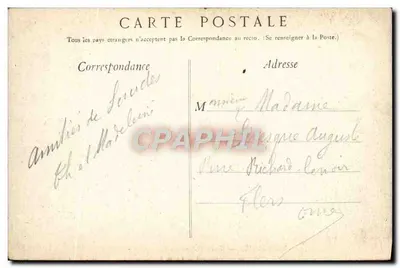 CARTE POSTALE
Tous les pays étrangers n'acceptent pas la Correspondance au recto. (Se renseigner à la Poste.)
Correspondance
Adresse
Amitiés de
Th et Madeleine
Monsieur Madame
Auguste
Rue Richard-Lenoir
Flers
Orne